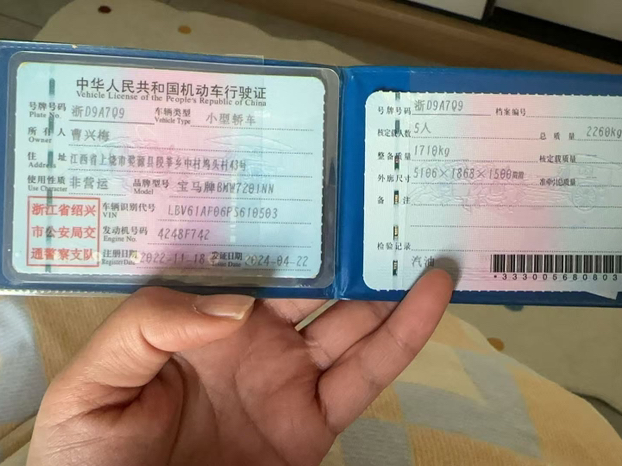 中华人民共和国机动车行驶证
Vehicle License of the People's Republic of China
号牌号码 浙D9A7Q9 车辆类型 小型轿车
Plate No. Vehicle Type
所有人 曹兴梅
Owner
住址 江西省上饶市婺源县段莘乡中村坞头村43号
Address
使用性质 非营运 品牌型号 宝马牌BMW7201NN
Use Character Model
浙江省绍兴
市公安局交
通警察支队
车辆识别代号 LBV61AF06PS610503
VIN
发动机号码 4248F742
Engine No.
注册日期 2022-11-18 发证日期 2024-04-22
Register Date Issue Date
号牌号码 浙D9A7Q9 档案编号
核定载人数 5人 总质量 2260kg
整备质量 1710kg 核定载质量
外廓尺寸 5106×1868×1500mm 准牵引总质量
备注
检验记录
汽油
*333005680803